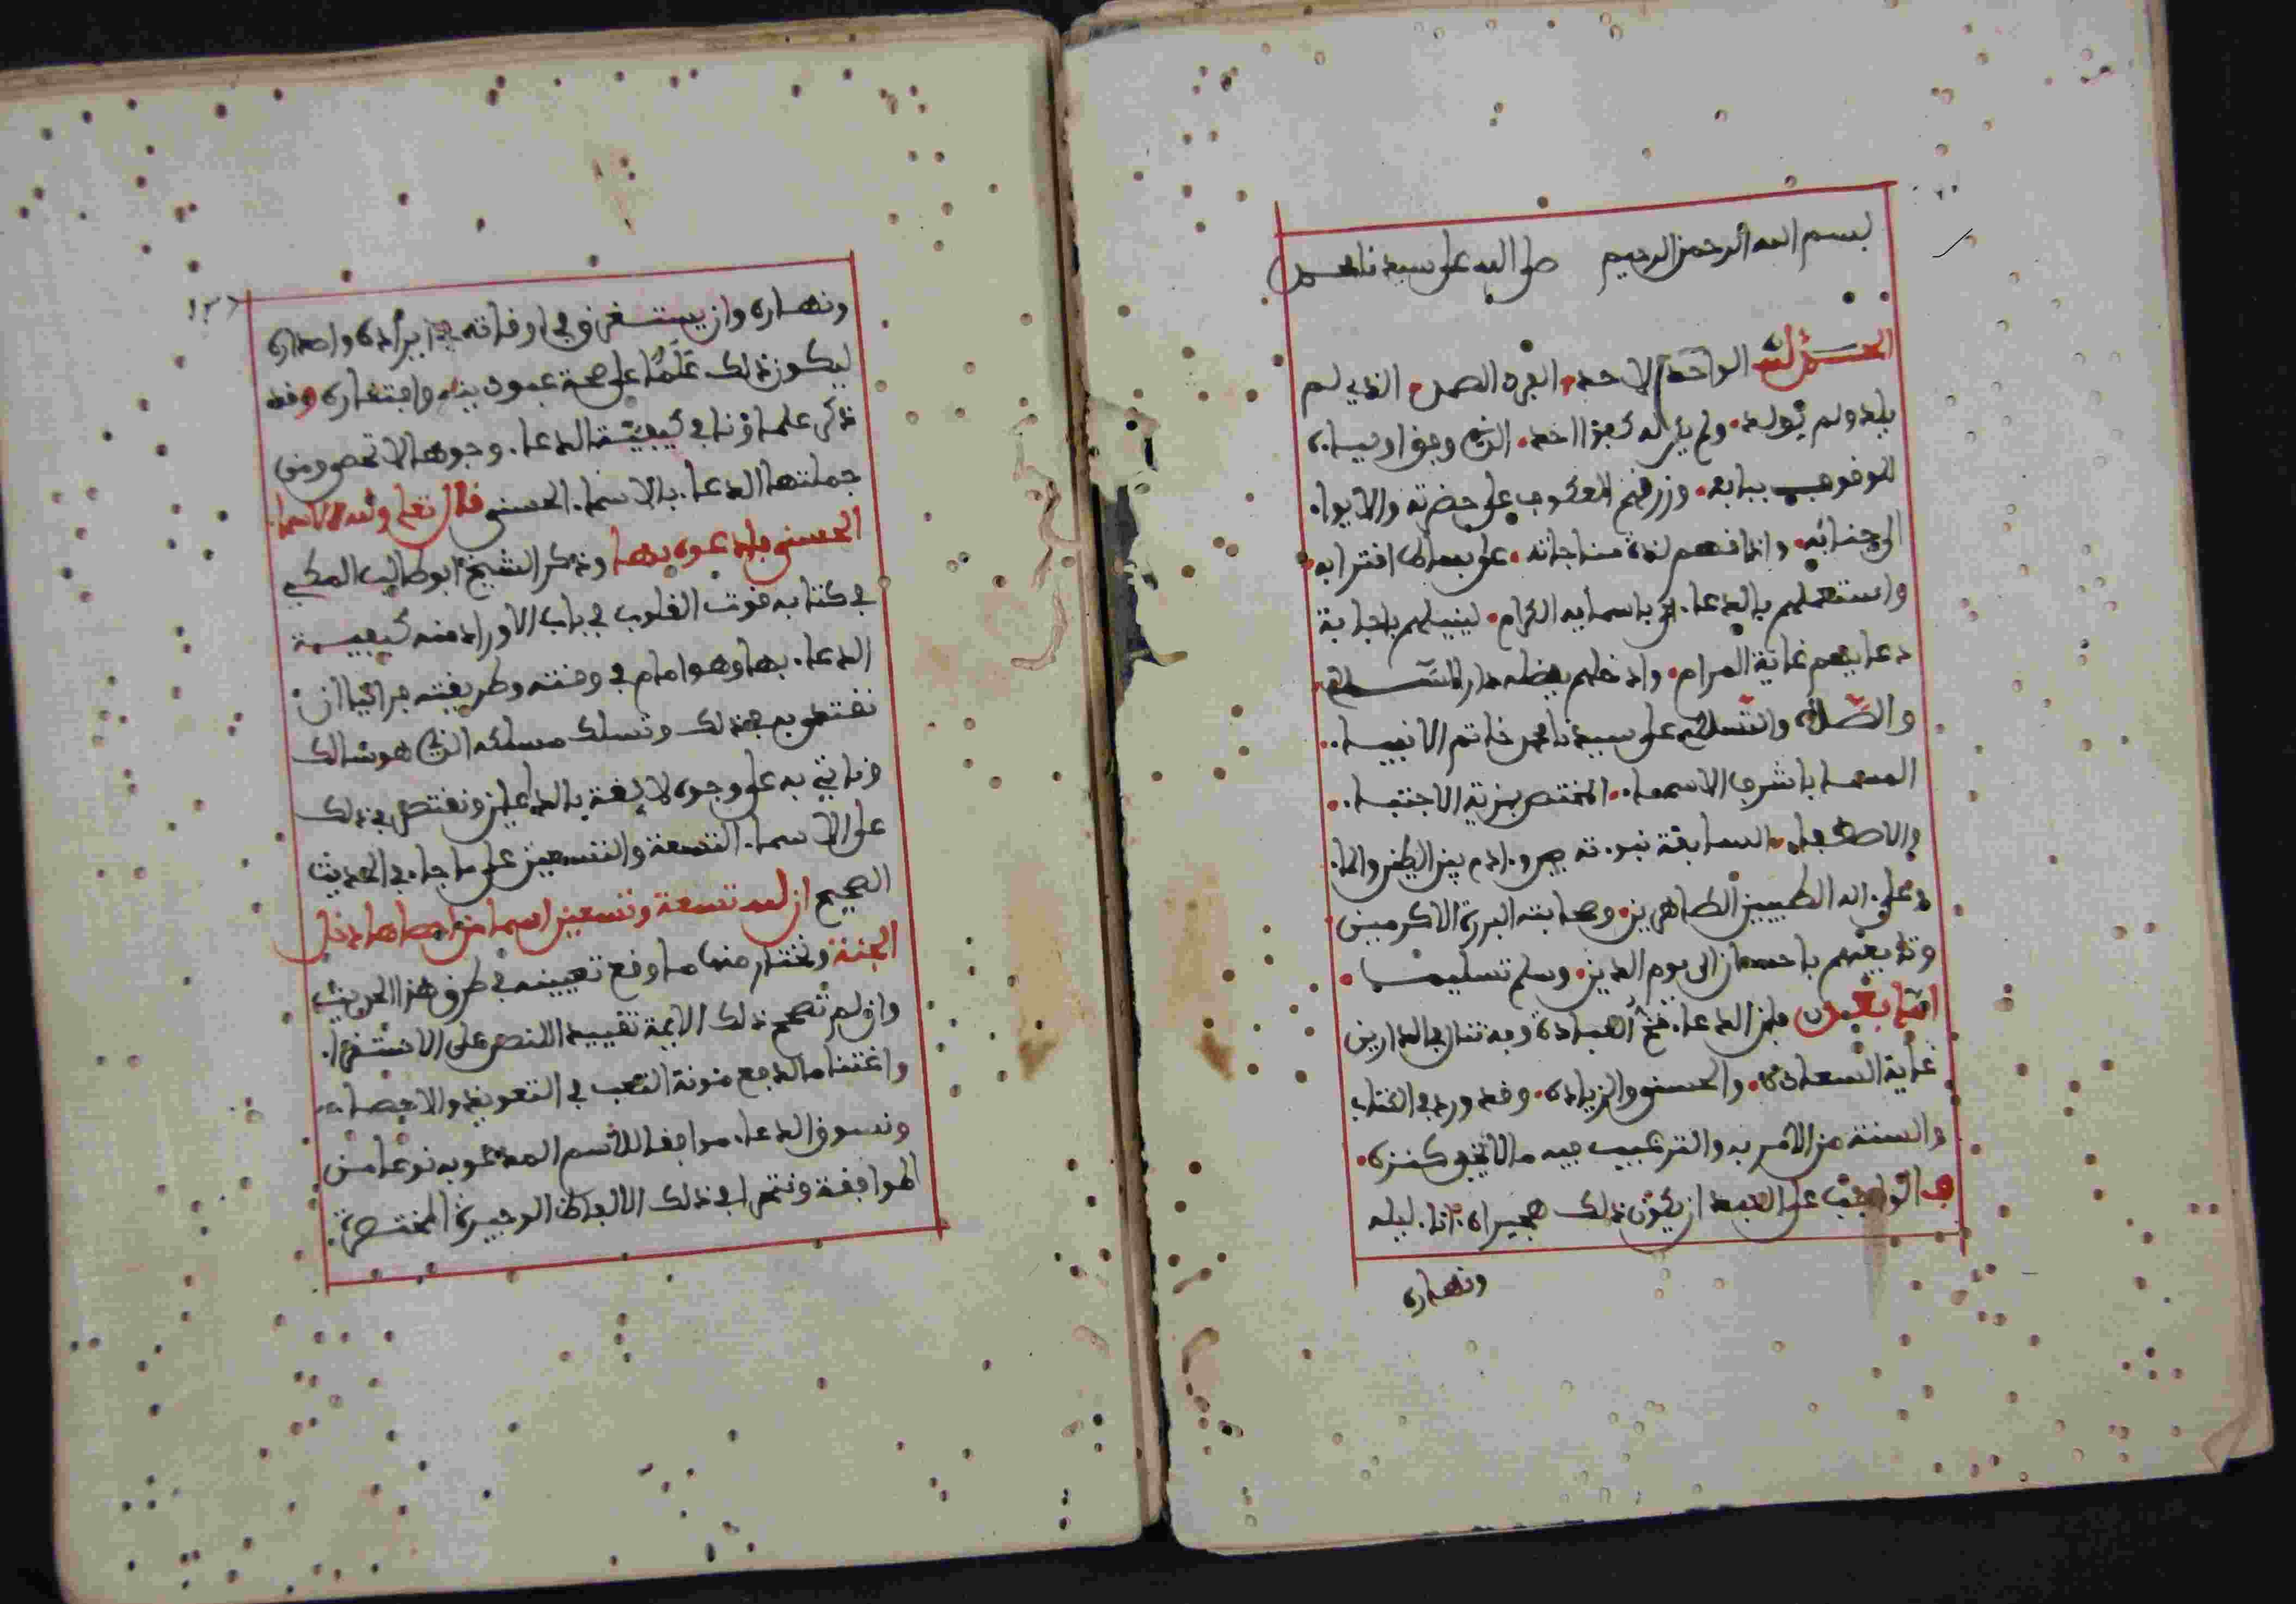 بسم الله الرحمن الرحيم صلى الله على سيدنا محمد
الحمد لله الواحد الاحد الفرد الصمد الذي لم
يلد ولم يولد ولم يكن له كفؤا احد الذي وفق اولياءه
للوقوف ببابه ورزقهم العكوف على حضرته والايواء
الى جنابه واذاقهم لذة مناجاته على بساط اقترابه
واستعملهم بالدعاء باسمايه الكرام لينيلهم باجابة
دعايهم غاية المرام وادخلهم بفضله دار السلام
والصلاة والسلام على سيدنا محمد خاتم الانبياء
المسما باشرف الاسماء المختص بمزية الاجتباء
والاصطفاء السابقة نبوته وادم بين الطين والماء
وعلى اله الطيبين الطاهرين وصحابته البررة الاكرمين
وتابعيهم باحسان الى يوم الدين وسلم تسليما
اما بعد فان الدعاء مخ العبادة وبه تنال في الدارين
غاية السعادة والحسنى والزيادة وقد ورد في الكتاب
والسنة من الامر به والترغيب فيه ما لا تخفى كثرته
فالواجب على العبد ان يكون ذلك هجيراه اناء ليله
ونهاره
١٢٦
ونهاره وان يستغرق اوقاته في ايراده واصداره
ليكون ذلك علما على صحة عبوديته وافتقاره وقد
ذكر علماؤنا في كيفية الدعاء وجوها لا تحصى ومن
جملتها الدعاء بالاسماء الحسنى قال تعلى ولله الاسماء
الحسنى فادعوه بها وذكر الشيخ ابو طالب المكي
في كتابه قوت القلوب في باب الاوراد منه كيفية
الدعاء بها وهو امام في وقته وطريقته فراينا ان
نقتدي به في ذلك ونسلك مسلكه الذي هو سالك
وناتي به على وجوه لايقة بالداعين ونقتصر في ذلك
على الاسماء التسعة والتسعين على ما جاء في الحديث
الصحيح ان لله تسعة وتسعين اسما من احصاها دخل
الجنة ونختار منها ما وقع تعيينه في طرق هذا الحديث
وان لم تصحح ذلك الايمة تقييد النص على الاستقراء
واغتناما لدفع مئونة التعب في التعويذ والاحصاء
ونسوق الدعاء موافقا للاسم المدعو به نوعا من
الموافقة ونتحرا في ذلك الالفاظ الوجيزة المختصرة